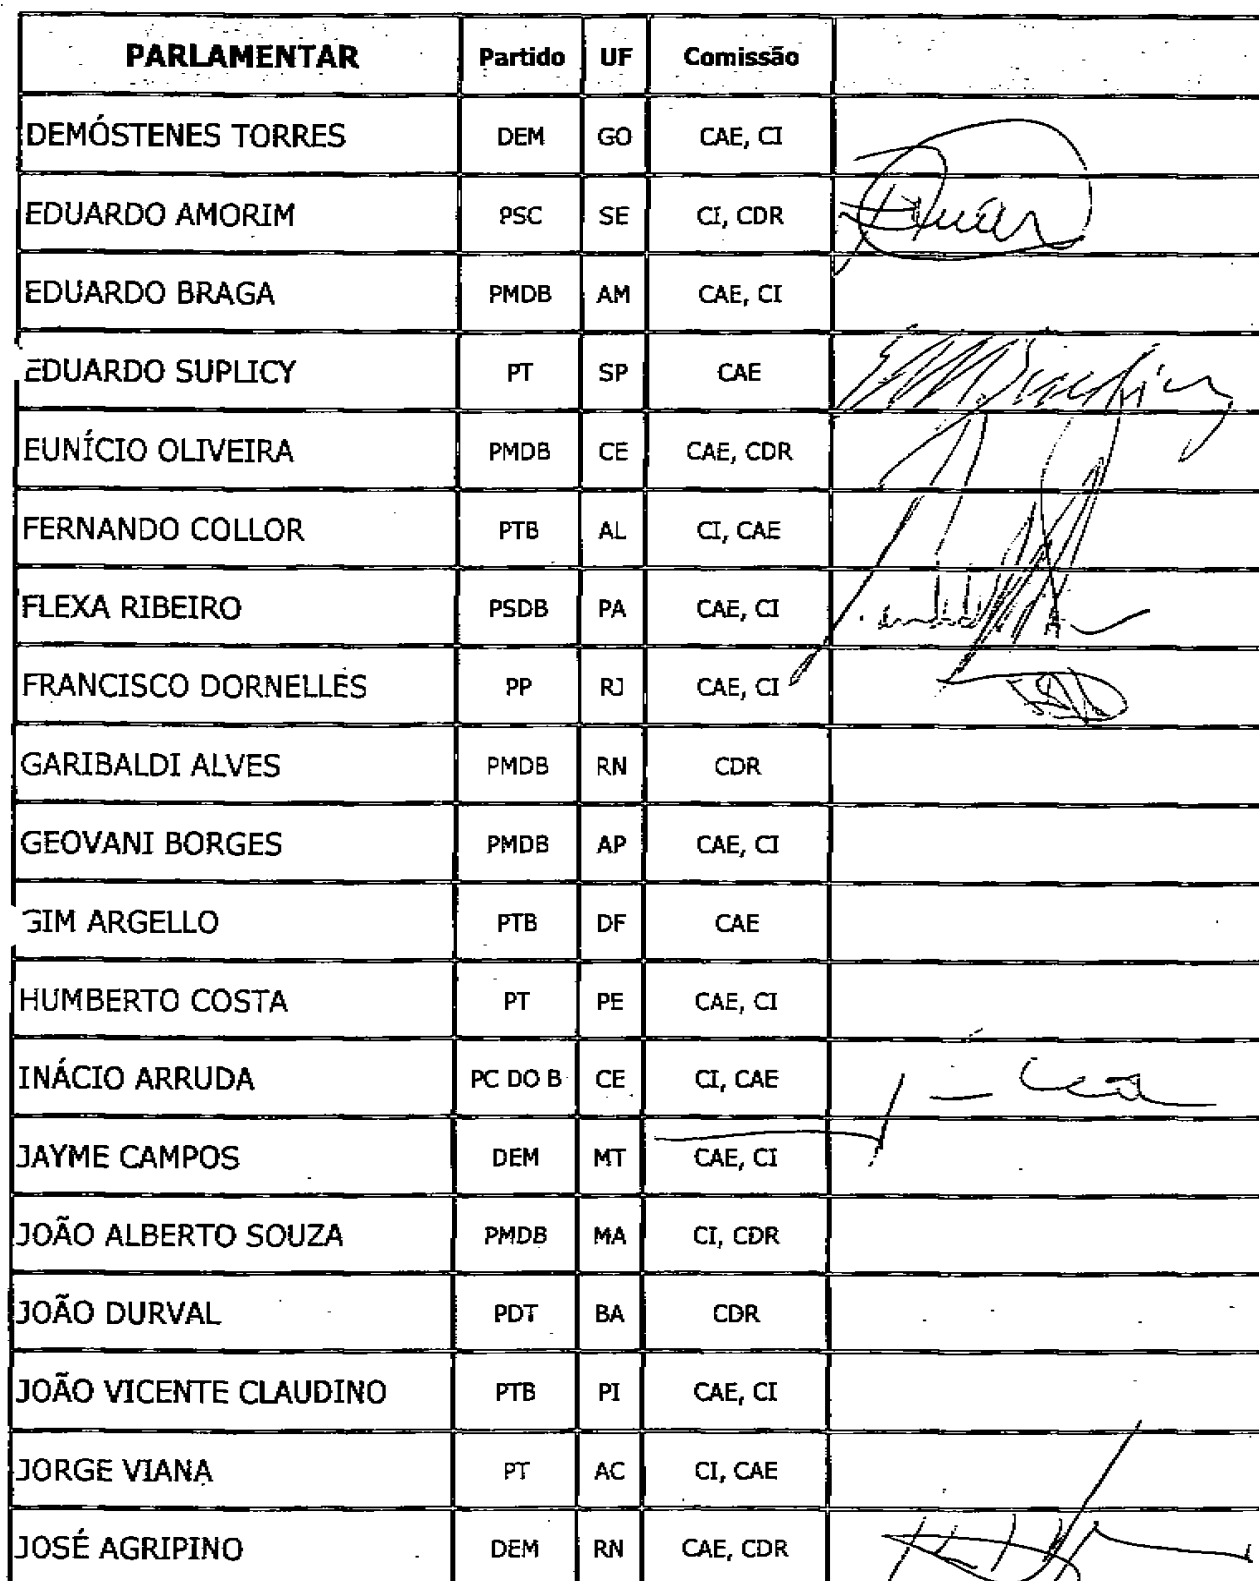 PARLAMENTAR Partido UF Comissão
DEMÓSTENES TORRES DEM GO CAE, CI
EDUARDO AMORIM PSC SE CI, CDR
EDUARDO BRAGA PMDB AM CAE, CI
EDUARDO SUPLICY PT SP CAE
EUNÍCIO OLIVEIRA PMDB CE CAE, CDR
FERNANDO COLLOR PTB AL CI, CAE
FLEXA RIBEIRO PSDB PA CAE, CI
FRANCISCO DORNELLES PP RJ CAE, CI
GARIBALDI ALVES PMDB RN CDR
GEOVANI BORGES PMDB AP CAE, CI
GIM ARGELLO PTB DF CAE
HUMBERTO COSTA PT PE CAE, CI
INÁCIO ARRUDA PC DO B CE CI, CAE
JAYME CAMPOS DEM MT CAE, CI
JOÃO ALBERTO SOUZA PMDB MA CI, CDR
JOÃO DURVAL PDT BA CDR
JOÃO VICENTE CLAUDINO PTB PI CAE, CI
JORGE VIANA PT AC CI, CAE
JOSÉ AGRIPINO DEM RN CAE, CDR